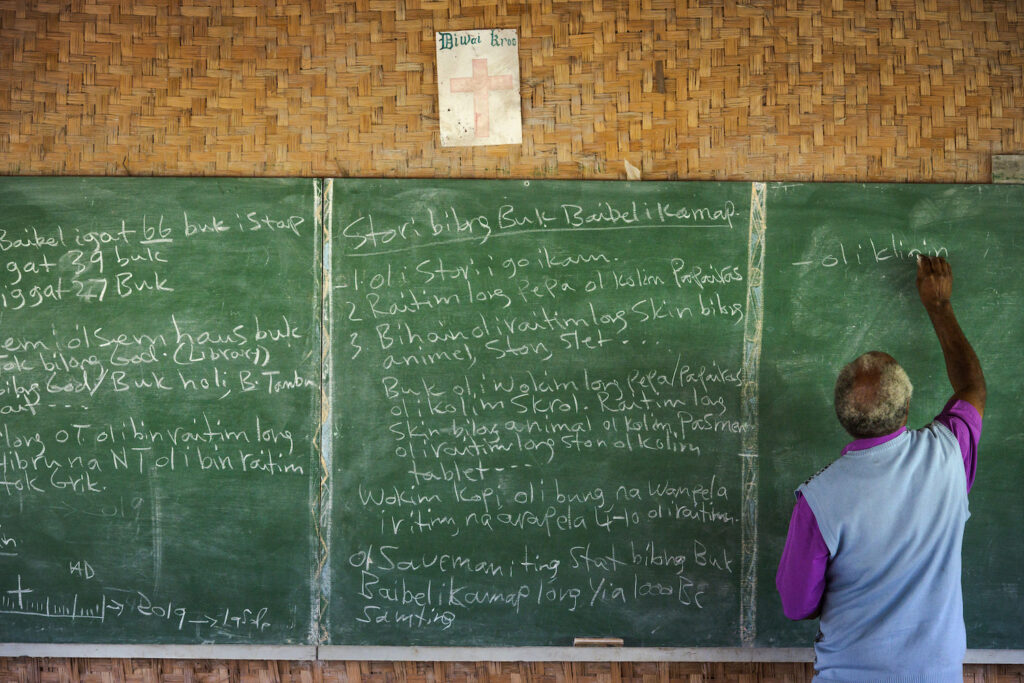 Diwai Kros
Baibel i gat 66 buk i stap
i gat 39 buk
i ggat 27 Buk
em i olsem haus buk
tok bilong God. (Library)
bilong God/Buk holi, B. Tambu
long OT oli bin raitim long
Hibru na NT oli bin raitim
tok Grik.
AD
2019
Stori bilong Buk Baibel i kamap.
1. oli Stori i go i kam.
2 Raitim long pepa ol kolim Papairas
3 Bihain oli raitim long Skin bilong
animel, Ston, Slet - - -
Buk oli wokim long pepa/Papairas
oli kolim Skrol. Raitim long
Skin bilong animal ol kolim Pasmen
ol raitim long Ston ol kolim
tablet - - - -
Wokim kopi, oli bung na wanpela
i ritim, na arapela 4-10 oli raitim.
ol Saveman i ting Stat bilong Buk
Baibel i kamap long Yia 1000 BC
Samting
- oli klinin